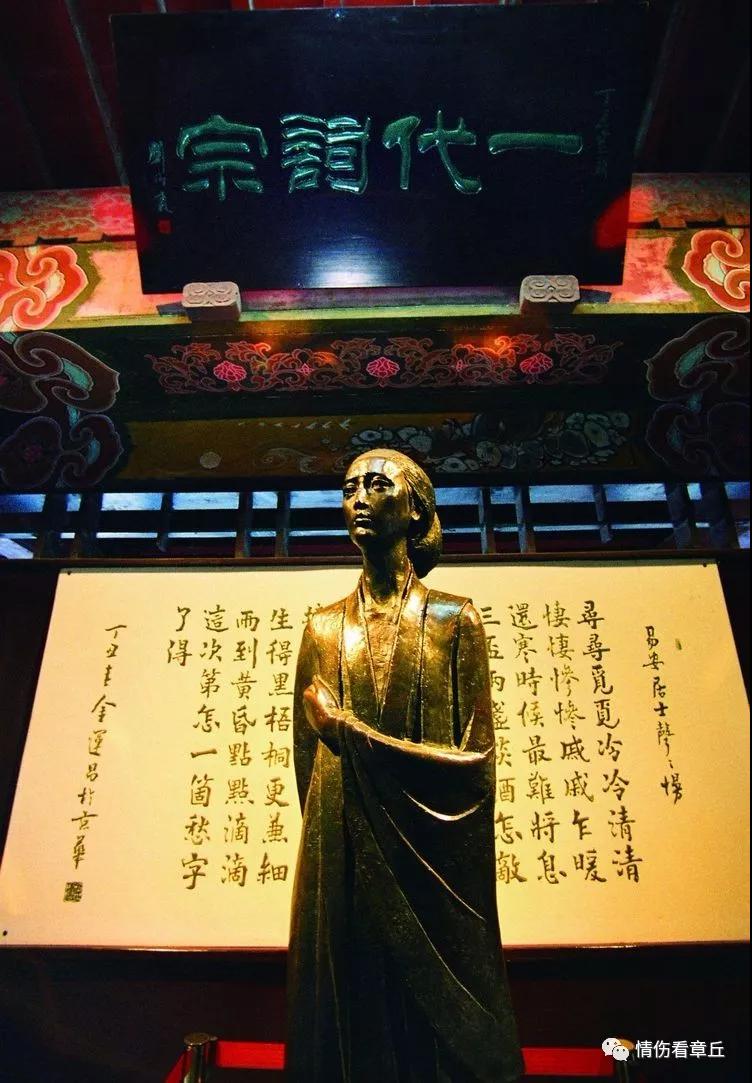 一代詞宗
易安居士聲〻慢
尋尋覓覓冷冷清清
悽悽慘慘戚戚乍暖
還寒時候最難將息
三盃兩盞淡酒怎敵
生得黑梧桐更兼細
雨到黃昏點點滴滴
這次第怎一箇愁字
了得
丁丑春金運昌於京華
情伤看章丘